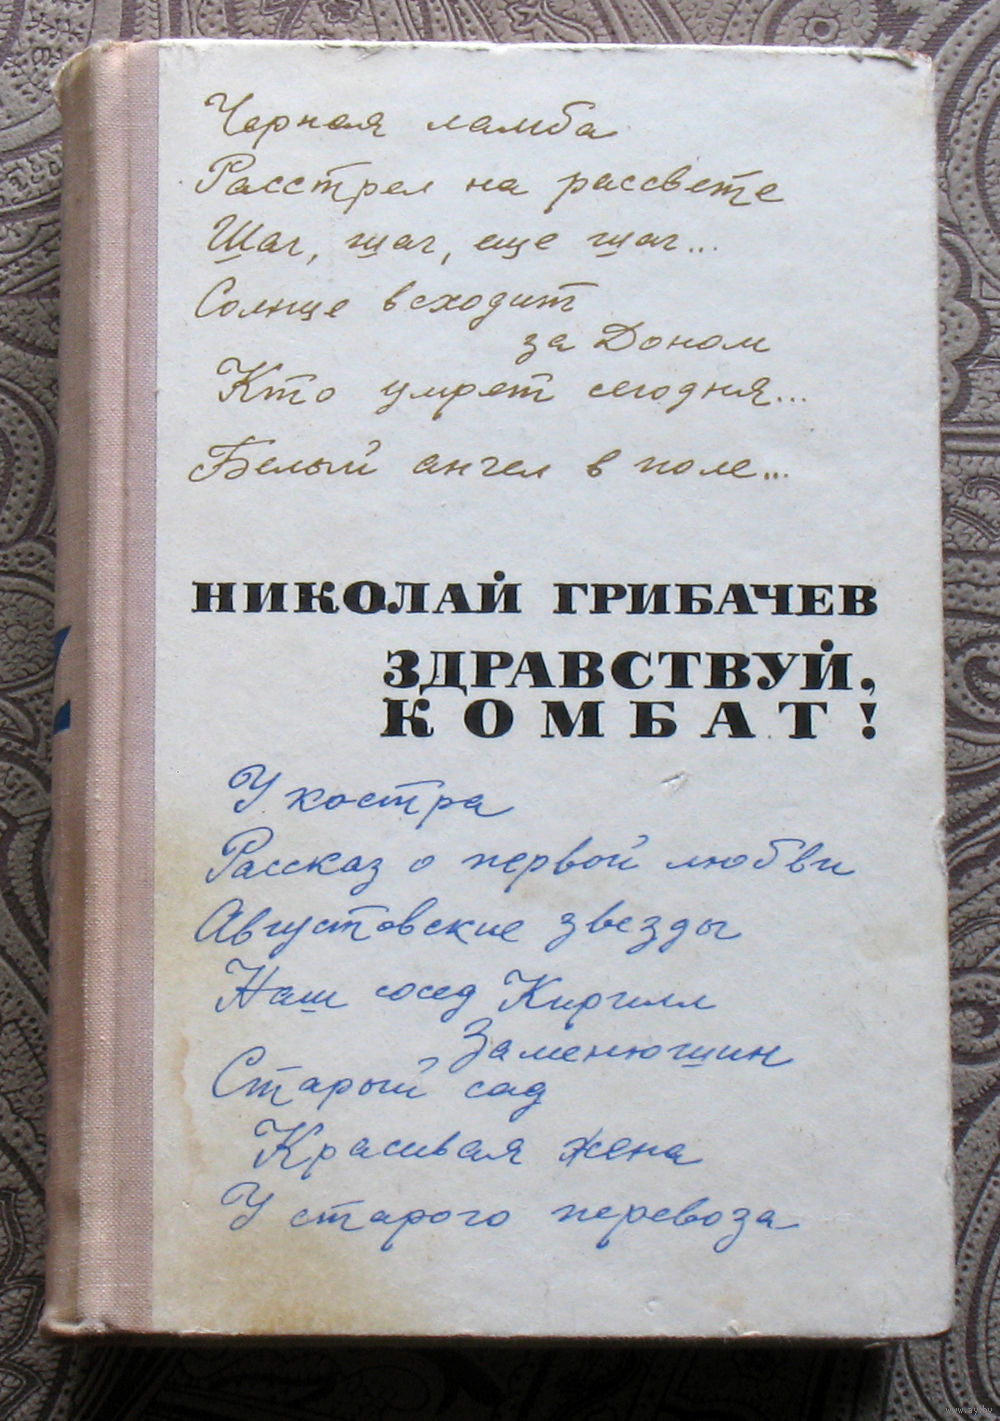 Черная ламба
Расстрел на рассвете
Шаг, шаг, еще шаг...
Солнце всходит
за Доном
Кто умрет сегодня...
Белый ангел в поле...
НИКОЛАЙ ГРИБАЧЕВ
ЗДРАВСТВУЙ,
КОМБАТ!
У костра
Рассказ о первой любви
Августовские звезды
Наш сосед Кирилл
Заменюшин
Старый сад
Красивая жена
У старого перевоза
www.ay.by